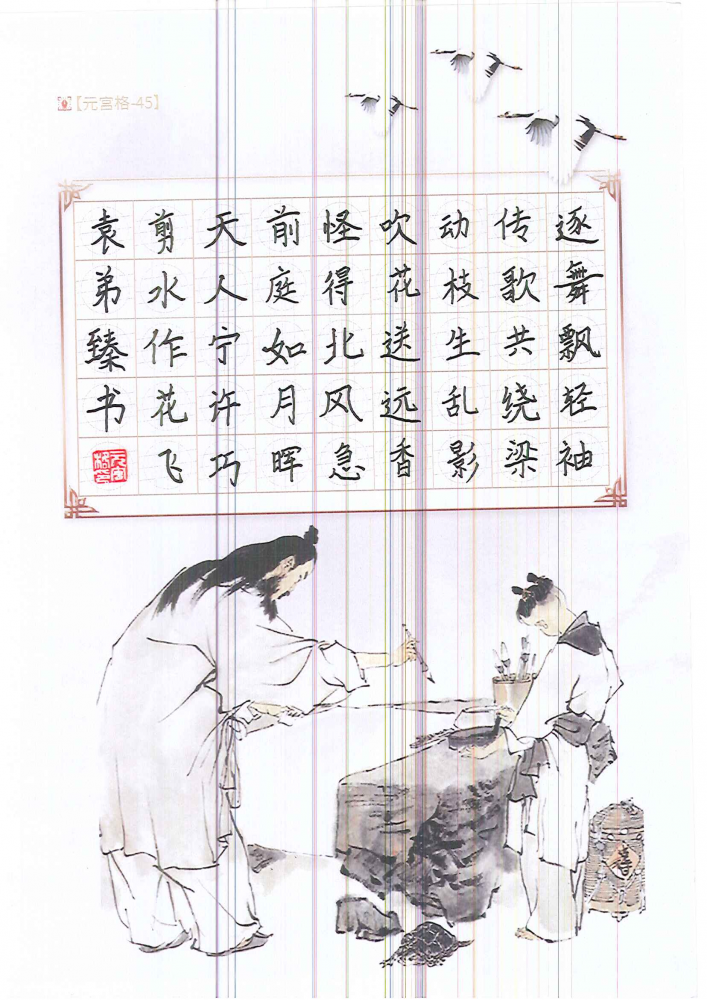 【元宮格-45】
逐舞飘轻袖
传歌共绕梁
动枝生乱影
吹花送远香
怪得北风急
前庭如月晖
天人宁许巧
剪水作花飞
袁弟臻书